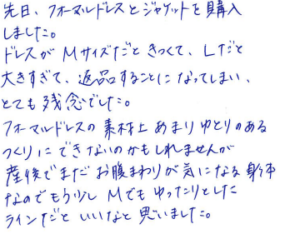 先日、フォーマルドレスとジャケットを購入
しました。
ドレスがMサイズだときつくて、Lだと
大きすぎて、返品することになってしまい、
とても残念でした。
フォーマルドレスの素材上あまりゆとりのある
つくりにできないのかもしれませんが
産後でまだお腹まわりが気になる身体
なのでもう少しMでもゆったりとした
ラインだといいなと思いました。